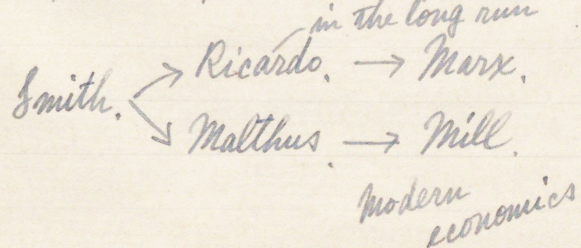 in the long run
Ricardo. → Marx.
Smith.
Malthus. → Mill.
Modern
economics